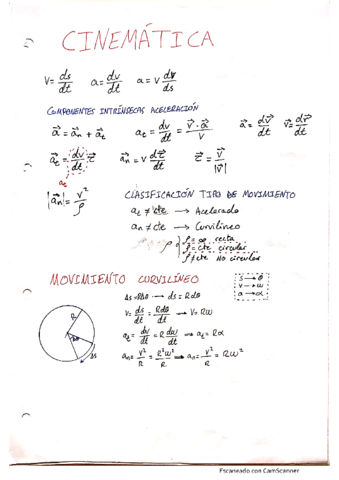 CINEMÁTICA
V = ds/dt   a = dv/dt   a = v dv/ds
COMPONENTES INTRÍNSECAS ACELERACIÓN
a⃗ = a⃗n + a⃗t   at = dv/dt = v⃗ · a⃗/v   a⃗ = dv⃗/dt   v⃗ = dr⃗/dt
a⃗t = dv/dt τ⃗   a⃗n = v dτ⃗/dt   τ⃗ = v⃗/|v⃗|
at
|a⃗n| = v²/ρ   CLASIFICACIÓN TIPO DE MOVIMIENTO
at ≠ cte → Acelerado
an ≠ cte → Curvilíneo
ρ { ρ = ∞ recta
ρ = cte circular
ρ ≠ cte No circular
MOVIMIENTO CURVILÍNEO
s → θ
v → ω
a → α
Δs = RΔθ → ds = R dθ
V = ds/dt = Rdθ/dt → V = Rω
at = dv/dt = R dω/dt → at = Rα
an = v²/R = R²ω²/R → an = v²/R = Rω²
R
Δθ
Δs
Escaneado con CamScanner